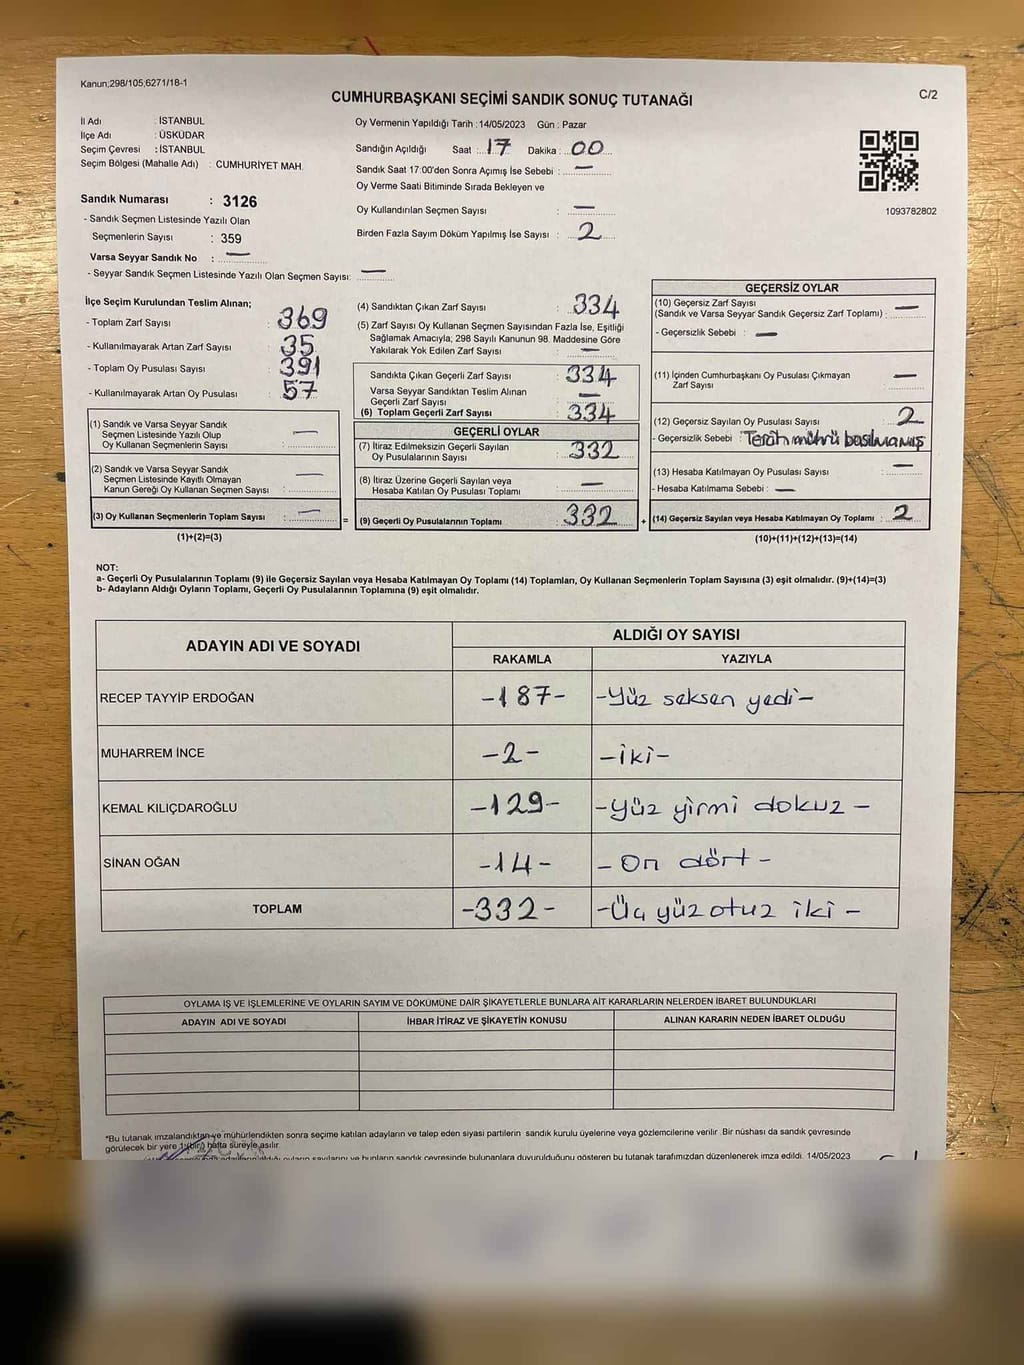 Kanun;298/105;6271/18-1
C/2
CUMHURBAŞKANI SEÇİMİ SANDIK SONUÇ TUTANAĞI
İl Adı : İSTANBUL
İlçe Adı : ÜSKÜDAR
Seçim Çevresi : İSTANBUL
Seçim Bölgesi (Mahalle Adı) : CUMHURİYET MAH.
Oy Vermenin Yapıldığı Tarih :14/05/2023 Gün : Pazar
Sandığın Açıldığı Saat :..17 Dakika :..00
Sandık Saat 17:00'den Sonra Açımış İse Sebebi : —
Oy Verme Saati Bitiminde Sırada Bekleyen ve
Oy Kullandırılan Seçmen Sayısı : —
Birden Fazla Sayım Döküm Yapılmış İse Sayısı : 2
1093782802
Sandık Numarası : 3126
- Sandık Seçmen Listesinde Yazılı Olan
Seçmenlerin Sayısı : 359
Varsa Seyyar Sandık No : —
- Seyyar Sandık Seçmen Listesinde Yazılı Olan Seçmen Sayısı: —
İlçe Seçim Kurulundan Teslim Alınan;
- Toplam Zarf Sayısı : 369
- Kullanılmayarak Artan Zarf Sayısı : 35
- Toplam Oy Pusulası Sayısı : 391
- Kullanılmayarak Artan Oy Pusulası : 57
(1) Sandık ve Varsa Seyyar Sandık
Seçmen Listesinde Yazılı Olup
Oy Kullanan Seçmenlerin Sayısı : —
(2) Sandık ve Varsa Seyyar Sandık
Seçmen Listesinde Kayıtlı Olmayan
Kanun Gereği Oy Kullanan Seçmen Sayısı : —
(3) Oy Kullanan Seçmenlerin Toplam Sayısı : —
(1)+(2)=(3)
(4) Sandıktan Çıkan Zarf Sayısı : 334
(5) Zarf Sayısı Oy Kullanan Seçmen Sayısından Fazla İse, Eşitliği
Sağlamak Amacıyla; 298 Sayılı Kanunun 98. Maddesine Göre
Yakılarak Yok Edilen Zarf Sayısı : —
Sandıkta Çıkan Geçerli Zarf Sayısı : 334
Varsa Seyyar Sandıktan Teslim Alınan
Geçerli Zarf Sayısı : —
(6) Toplam Geçerli Zarf Sayısı : 334
GEÇERLİ OYLAR
(7) İtiraz Edilmeksizin Geçerli Sayılan
Oy Pusulalarının Sayısı : 332
(8) İtiraz Üzerine Geçerli Sayılan veya
Hesaba Katılan Oy Pusulası Toplamı : —
= (9) Geçerli Oy Pusulalarının Toplamı : 332
GEÇERSİZ OYLAR
(10) Geçersiz Zarf Sayısı
(Sandık ve Varsa Seyyar Sandık Geçersiz Zarf Toplamı) : —
- Geçersizlik Sebebi : —
(11) İçinden Cumhurbaşkanı Oy Pusulası Çıkmayan
Zarf Sayısı : —
(12) Geçersiz Sayılan Oy Pusulası Sayısı : 2
- Geçersizlik Sebebi : Tercih mührü basılmamış
(13) Hesaba Katılmayan Oy Pusulası Sayısı : —
- Hesaba Katılmama Sebebi : —
+ (14) Geçersiz Sayılan veya Hesaba Katılmayan Oy Toplamı : 2
(10)+(11)+(12)+(13)=(14)
NOT:
a- Geçerli Oy Pusulalarının Toplamı (9) ile Geçersiz Sayılan veya Hesaba Katılmayan Oy Toplamı (14) Toplamları, Oy Kullanan Seçmenlerin Toplam Sayısına (3) eşit olmalıdır. (9)+(14)=(3)
b- Adayların Aldığı Oyların Toplamı, Geçerli Oy Pusulalarının Toplamına (9) eşit olmalıdır.
ADAYIN ADI VE SOYADI
ALDIĞI OY SAYISI
RAKAMLA YAZIYLA
RECEP TAYYİP ERDOĞAN -187- -Yüz seksen yedi-
MUHARREM İNCE -2- -iki-
KEMAL KILIÇDAROĞLU -129- -Yüz yirmi dokuz-
SİNAN OĞAN -14- -On dört-
TOPLAM -332- -Üç yüz otuz iki-
OYLAMA İŞ VE İŞLEMLERİNE VE OYLARIN SAYIM VE DÖKÜMÜNE DAİR ŞİKAYETLERLE BUNLARA AİT KARARLARIN NELERDEN İBARET BULUNDUKLARI
ADAYIN ADI VE SOYADI İHBAR İTİRAZ VE ŞİKAYETİN KONUSU ALINAN KARARIN NEDEN İBARET OLDUĞU
*Bu tutanak imzalandıktan ve mühürlendikten sonra seçime katılan adayların ve talep eden siyasi partilerin sandık kurulu üyelerine veya gözlemcilerine verilir .Bir nüshası da sandık çevresinde
görülecek bir yere 1 (bir) hafta süreyle asılır.
oyların sayılarını ve bunların sandık çevresinde bulunanlara duyurulduğunu gösteren bu tutanak tarafımızdan düzenlenerek imza edildi. 14/05/2023